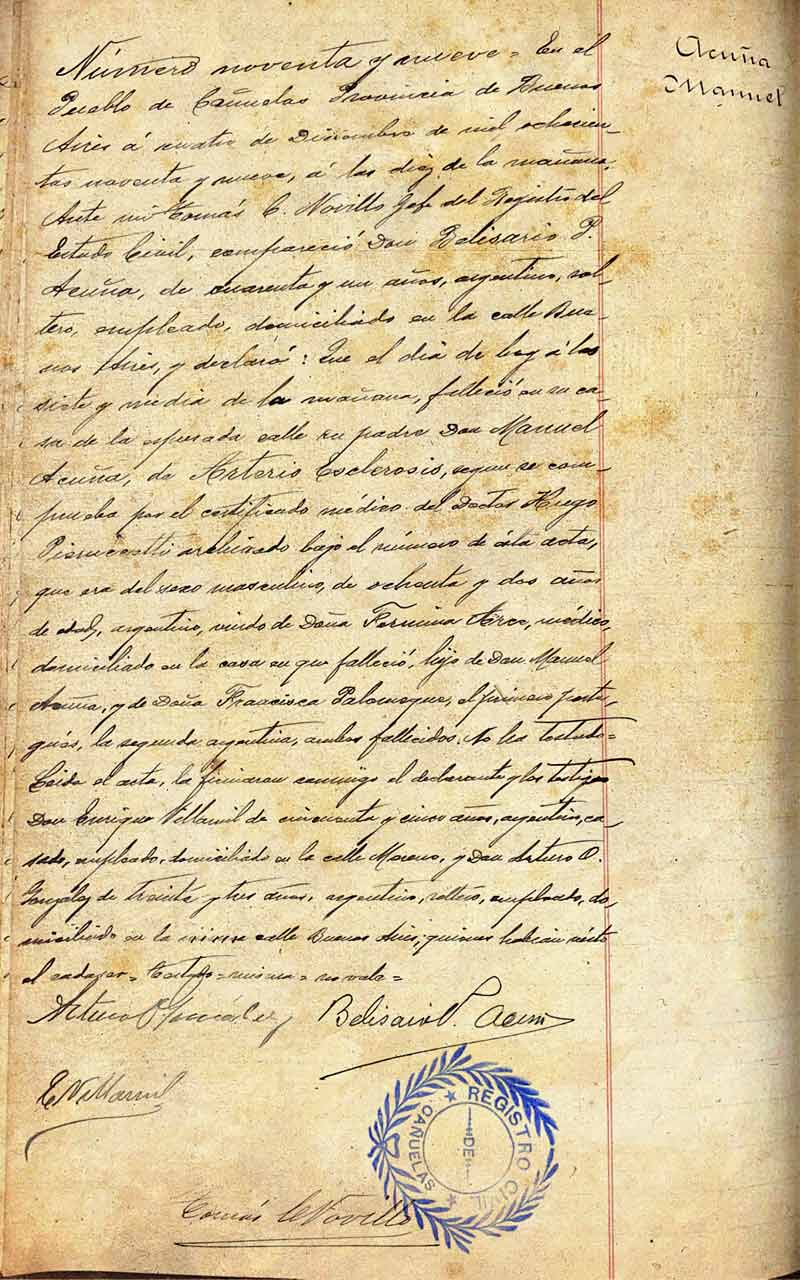 Acuña
Manuel
Número noventa y nueve = En el
Pueblo de Cañuelas Provincia de Buenos
Aires á cuatro de Diciembre de mil ochocien-
tos noventa y nueve, á las diez de la mañana,
Ante mi Tomás C. Novillo Gefe del Registro del
Estado Civil, compareció Don Belisario P.
Acuña, de cuarenta y un años, argentino, sol-
tero, empleado, domiciliado en la calle Bue-
nos Aires, y declaró: Que el dia de hoy á las
siete y media de la mañana, falleció en su ca-
sa de la espresada calle su padre Don Manuel
Acuña, de Arterio Esclerosis, segun se com-
prueba por el certificado médico del Doctor Hugo
archivado bajo el número de ésta acta,
que era del sexo masculino, de ochenta y dos años
de edad, argentino, viudo de Doña Fermina Arce, médico,
domiciliado en la casa en que falleció, hijo de Don Manuel
Acuña, y de Doña Francisca Palomeque, el primero portu-
gués, la segunda argentina, ambos fallecidos. No ha testado=
Leida el acta, la firmaron conmigo el declarante y los testigos
Don Enrique Villamil de cincuenta y cinco años, argentino, ca-
sado, empleado, domiciliado en la calle Moreno, y Don Arturo O.
Gonzalez de treinta y tres años, argentino, soltero, empleado, do-
miciliado en la misma calle Buenos Aires; quienes habian visto
el cadaver = Testado = misma = no vale =
Arturo O González
Belisario P. Acuña
E Villamil
REGISTRO CIVIL
DE
CAÑUELAS
Tomás C Novillo